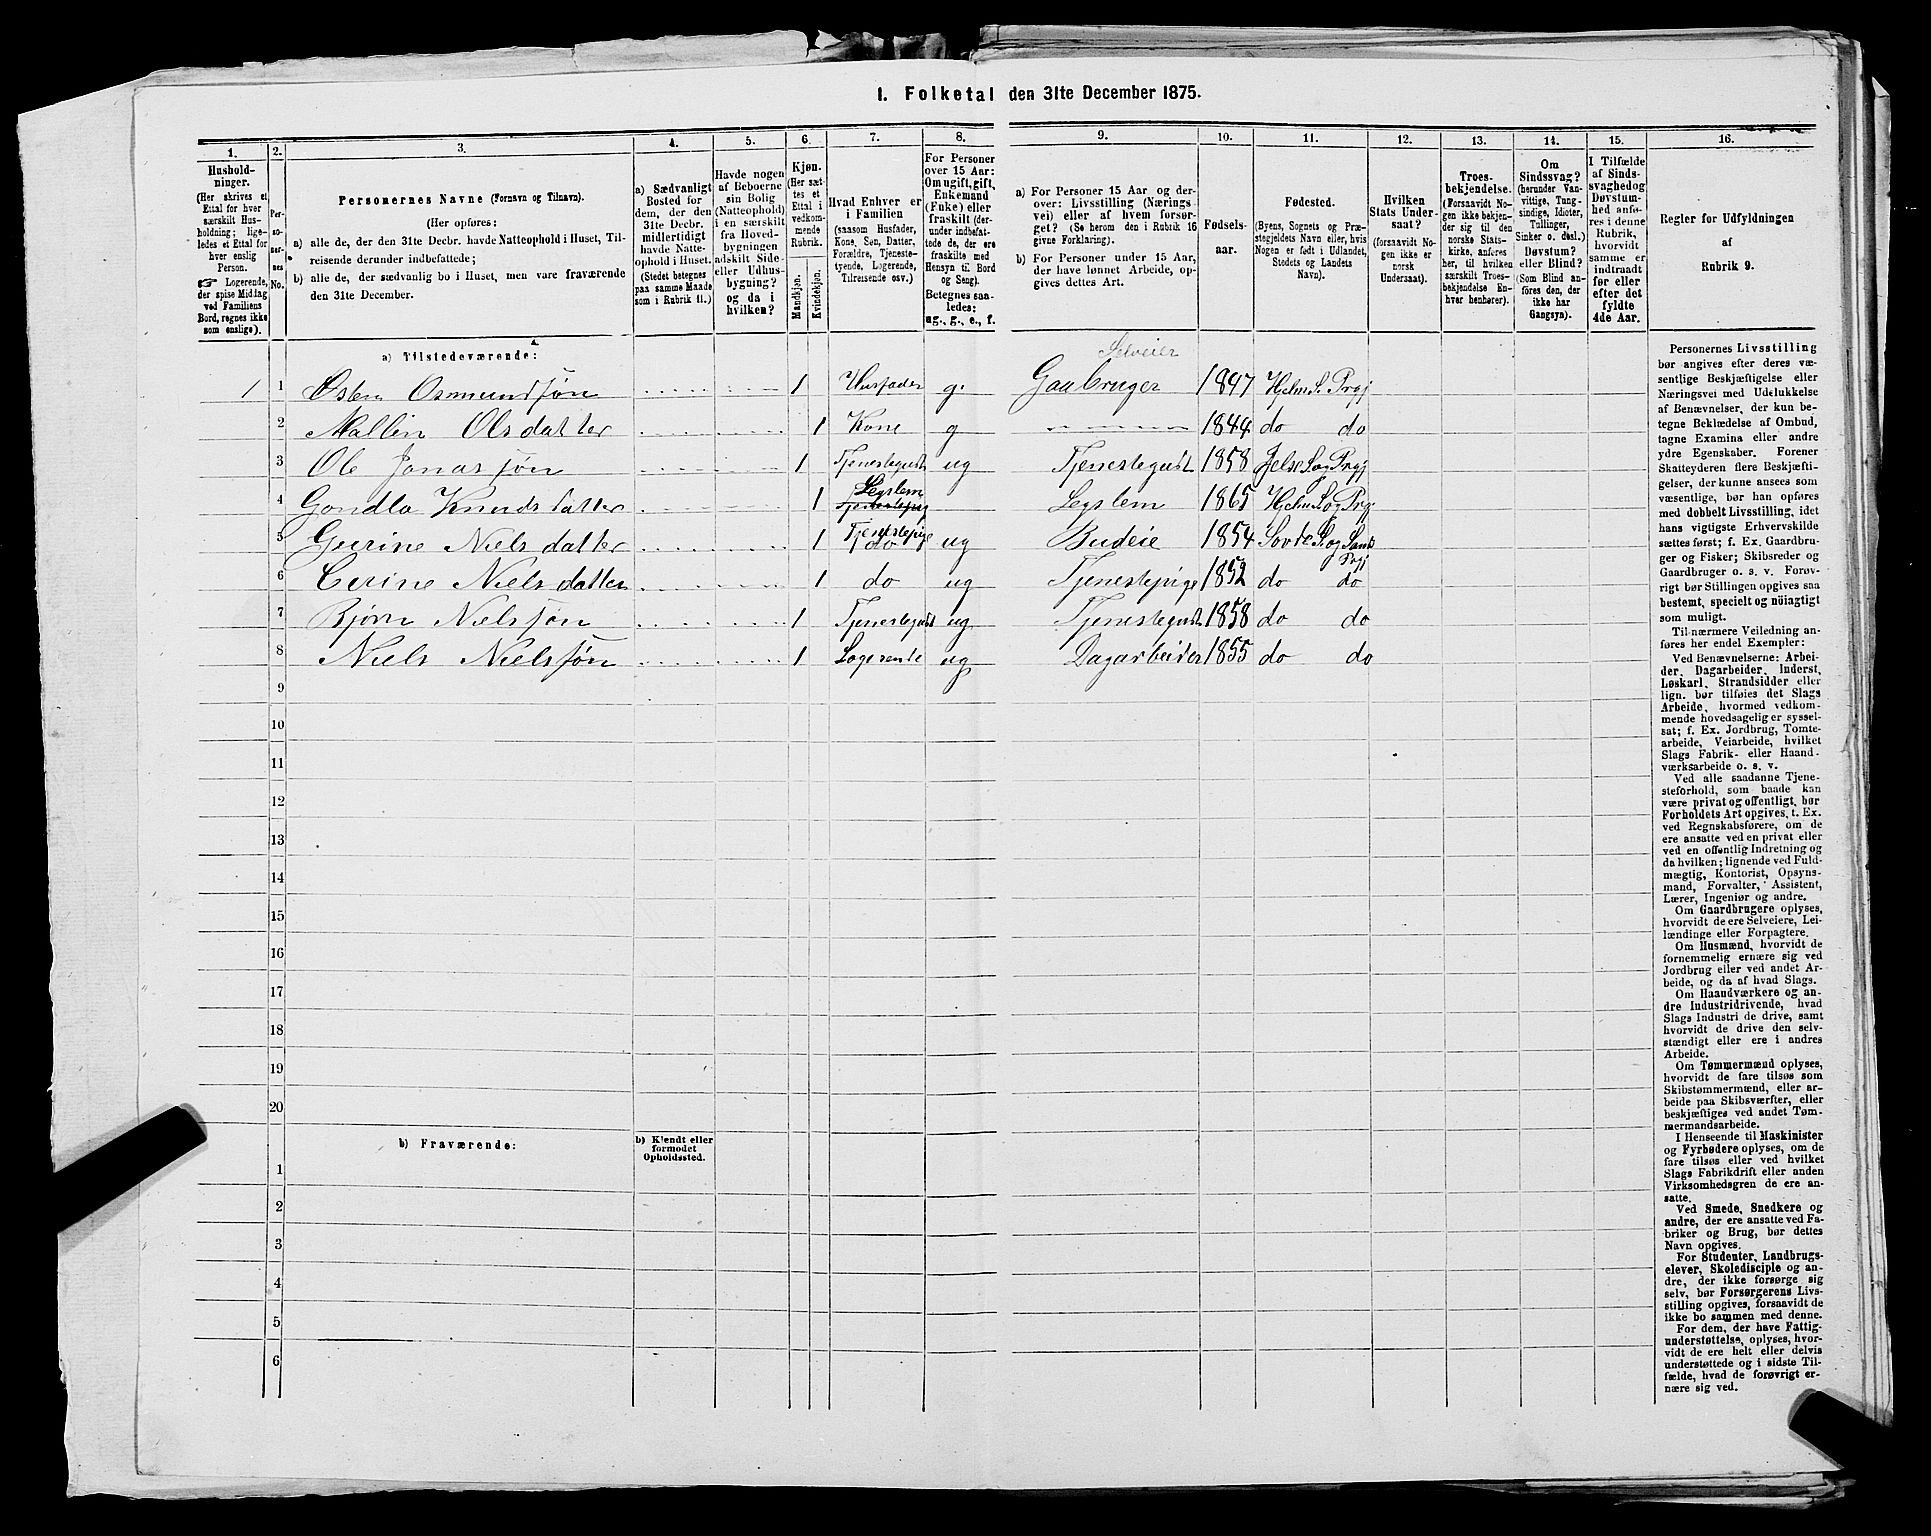 I. Folketal den 31te December 1875.
1. 2. 3. 4. 5. 6. 7. 8. 9. 10. 11. 12. 13. 14. 15. 16.
Hushold-
ninger.
(Her skrives et
Ettal for hver
særskilt Hus-
holdning; lige-
ledes et Ettal for
hver enslig
Person.
☞ Logerende,
der spise Middag
ved Familiens
Bord, regnes ikke
som enslige).
Per-
so-
ner-
nes
No.
Personernes Navne (Fornavn og Tilnavn).
(Her opføres:
a) alle de, der den 31te Decbr. havde Natteophold i Huset, Til-
reisende derunder indbefattede;
b) alle de, der sædvanlig bo i Huset, men vare fraværende
den 31te December.
a) Sædvanligt
Bosted for
dem, der den
31te Decbr.
midlertidigt
havde Natte-
ophold i Huset.
(Stedet betegnes
paa samme Maade
som i Rubrik 11.)
Havde nogen
af Beboerne
sin Bolig
(Natteophold)
i en særskilt
fra Hoved-
bygningen
adskilt Side-
eller Udhus-
bygning?
og da i
hvilken?
Kjøn.
(Her sæt-
tes et
Ettal i
vedkom-
mende
Rubrik.
Mandkjøn.
Kvindekjøn.
Hvad Enhver er
i Familien
(saasom Husfader,
Kone, Søn, Datter,
Forældre, Tjeneste-
tyende, Logerende,
Tilreisende osv.)
For Personer
over 15 Aar:
Om ugift, gift,
Enkemand
(Enke) eller
fraskilt (der-
under indbefat-
tede de, der ere
fraskilte med
Hensyn til Bord
og Seng).
Betegnes saa-
ledes:
ug., g., e., f.
a) For Personer 15 Aar og der-
over: Livsstilling (Nærings
vei) eller af hvem forsør-
get? (Se herom den i Rubrik 16
givne Forklaring).
b) For Personer under 15 Aar,
der have lønnet Arbeide, op-
gives dettes Art.
Fødsels-
aar.
Fødested.
(Byens, Sognets og Præ-
stegjeldets Navn eller, hvis
Nogen er født i Udlandet,
Stedets og Landets
Navn).
Hvilken
Stats Under-
saat?
(forsaavidt No-
gen ikke er
norsk
Undersaat).
Troes-
bekjendelse.
(Forsaavidt No-
gen ikke bekjen-
der sig til den
norske Stats-
kirke, anføres
her, til hvilken
særskilt Troes-
bekjendelse En-
hver henhører).
Om
Sindssvag?
(herunder Van-
vittige, Tung-
sindige, Idioter,
Tullinger,
Sinker o. desl.)
Døvstum?
eller Blind?
(Som Blind an-
føres den, der
ikke har
Gangsyn).
I Tilfælde
af Sinds-
svaghed og
Døvstum-
hed anfø-
res i denne
Rubrik,
hvorvidt
samme er
indtraadt
før eller
efter det
fyldte
4de Aar.
Regler for Udfyldningen
af
Rubrik 9.
a) Tilstedeværende:
Selveier
1 1 Østen Osmundsøn 1 Husfader g. Gaabruger 1847 Helm S. Prgj
2 Mallin Olsdatter 1 Kone g 1844 do do
3 Ole Jonassøn 1 Tjenestegut ug Tjenestegut 1858 Jelse S og Prgj
4 Gondla Knudsdatter 1 Legslem Tjenestepig Legslem 1865 Helm S. og Prgj
5 Gurine Nielsdatter 1 Tjenestepige do ug Budeie 1854 Sovde S. og Sands Prgj
6 Cerine Nielsdatter 1 do ug Tjenestepige 1852 do do
7 Bjørn Nielsøn 1 Tjenestegut ug Tjenestegut 1858 do do
8 Niels Nielsøn 1 Logerende ug Dagarbeider 1855 do do
9
10
11
12
13
14
15
16
17
18
19
20
b) Fraværende:
b) Kjendt eller
formodet
Opholdssted.
1
2
3
4
5
6
Personernes Livsstilling
bør angives efter deres væ-
sentlige Beskjæftigelse eller
Næringsvei med Udelukkelse
af Benævnelser, der kun be-
tegne Beklædelse af Ombud,
tagne Examina eller andre
ydre Egenskaber. Forener
Skatteyderen flere Beskjæfti-
gelser, der kunne ansees som
væsentlige, bør han opføres
med dobbelt Livsstilling, idet
hans vigtigste Erhvervskilde
sættes først; f. Ex. Gaardbru-
ger og Fisker; Skibsreder og
Gaardbruger o. s. v. Forøv-
rigt bør Stillingen opgives saa
bestemt, specielt og nøiagtigt
som muligt.
Til nærmere Veiledning an-
føres her endel Exempler:
Ved Benævnelserne: Arbei-
der, Dagarbeider, Inderst,
Løskarl, Strandsidder eller
lign. bør tilføies det Slags
Arbeide, hvormed vedkom-
mende hovedsagelig er syssel-
sat; f. Ex. Jordbrug, Tomte-
arbeide, Veiarbeide, hvilket
Slags Fabrik- eller Haand-
værksarbeide o. s. v.
Ved alle saadanne Tjene-
steforhold, som baade kan
være privat og offentligt, bør
Forholdets Art opgives, t. Ex.
ved Regnskabsførere, om de
ere ansatte ved en privat eller
ved en offentlig Indretning og
da hvilken; lignende ved Fuld-
mægtig, Kontorist, Opsyns-
mand, Forvalter, Assistent,
Lærer, Ingeniør og andre.
Om Gaardbrugere oplyses,
hvorvidt de ere Selveiere, Lei-
lændinge eller Forpagtere.
Om Husmænd, hvorvidt de
fornemmelig ernære sig ved
Jordbrug eller ved andet Ar-
beide, og da af hvad Slags.
Om Haandværkere og an-
dre Industridrivende, hvad
Slags Industri de drive, samt
hvorvidt de drive den selv-
stændigt eller ere i andres
Arbeide.
Om Tømmermænd oplyses,
hvorvidt de fare tilsøs som
Skibstømmermænd, eller ar-
beide paa Skibsværfter, eller
beskjæftiges ved andet Tøm-
mermandsarbeide.
I Henseende til Maskinister
og Fyrbødere oplyses, om de
fare tilsøs eller ved hvilket
Slags Fabrikdrift eller anden
Virksomhedsgren de ere an-
satte.
Ved Smede, Snedkere og
andre, der ere ansatte ved Fa-
briker og Brug, bør dettes
Navn opgives.
For Studenter, Landbrugs-
elever, Skoledisciple og an-
dre, der ikke forsørge sig
selv, bør Forsørgerens Livs-
stilling opgives, forsaavidt de
ikke bo sammen med denne.
For dem, der have Fattig-
understøttelse, oplyses, hvor-
vidt de ere helt eller delvis
understøttede og i sidste Til-
fælde, hvad de forøvrigt er-
nære sig ved.